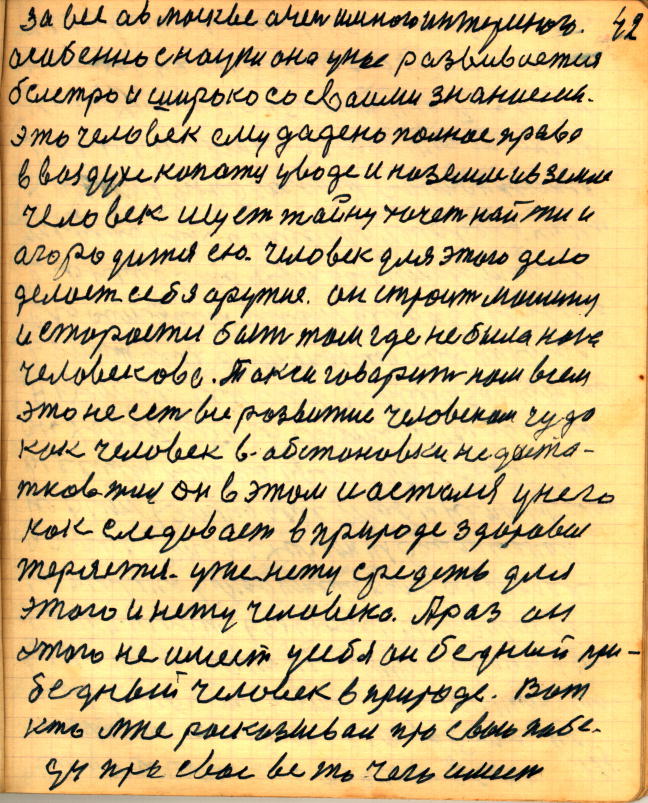 за все ав москве очен много интересного. 42
особенно с науки она уже развивается
быстро и широко со своими знанием.
это человек ему дадено полное право
в воздухе копаты у воде и на земле и в земле
человек ищет тайну хочет найти и
агородится ею. человек для этого дело
делает себя оружие. он строит машины
и старается быт там где не была нога
человекова. Так и говарит нам всем
это не ест все развитие человеком чудо
как человек в обстановки недоста-
он в этом и астался у него
как следовает в природе здоровье
теряется. уже нету средств для
этого и нету человека. А раз он
этого не имеет у себя он бедный пре-
бедный человек в природе. Вот
кто мне расказывал про свою побе-
ду про свое чего имеет